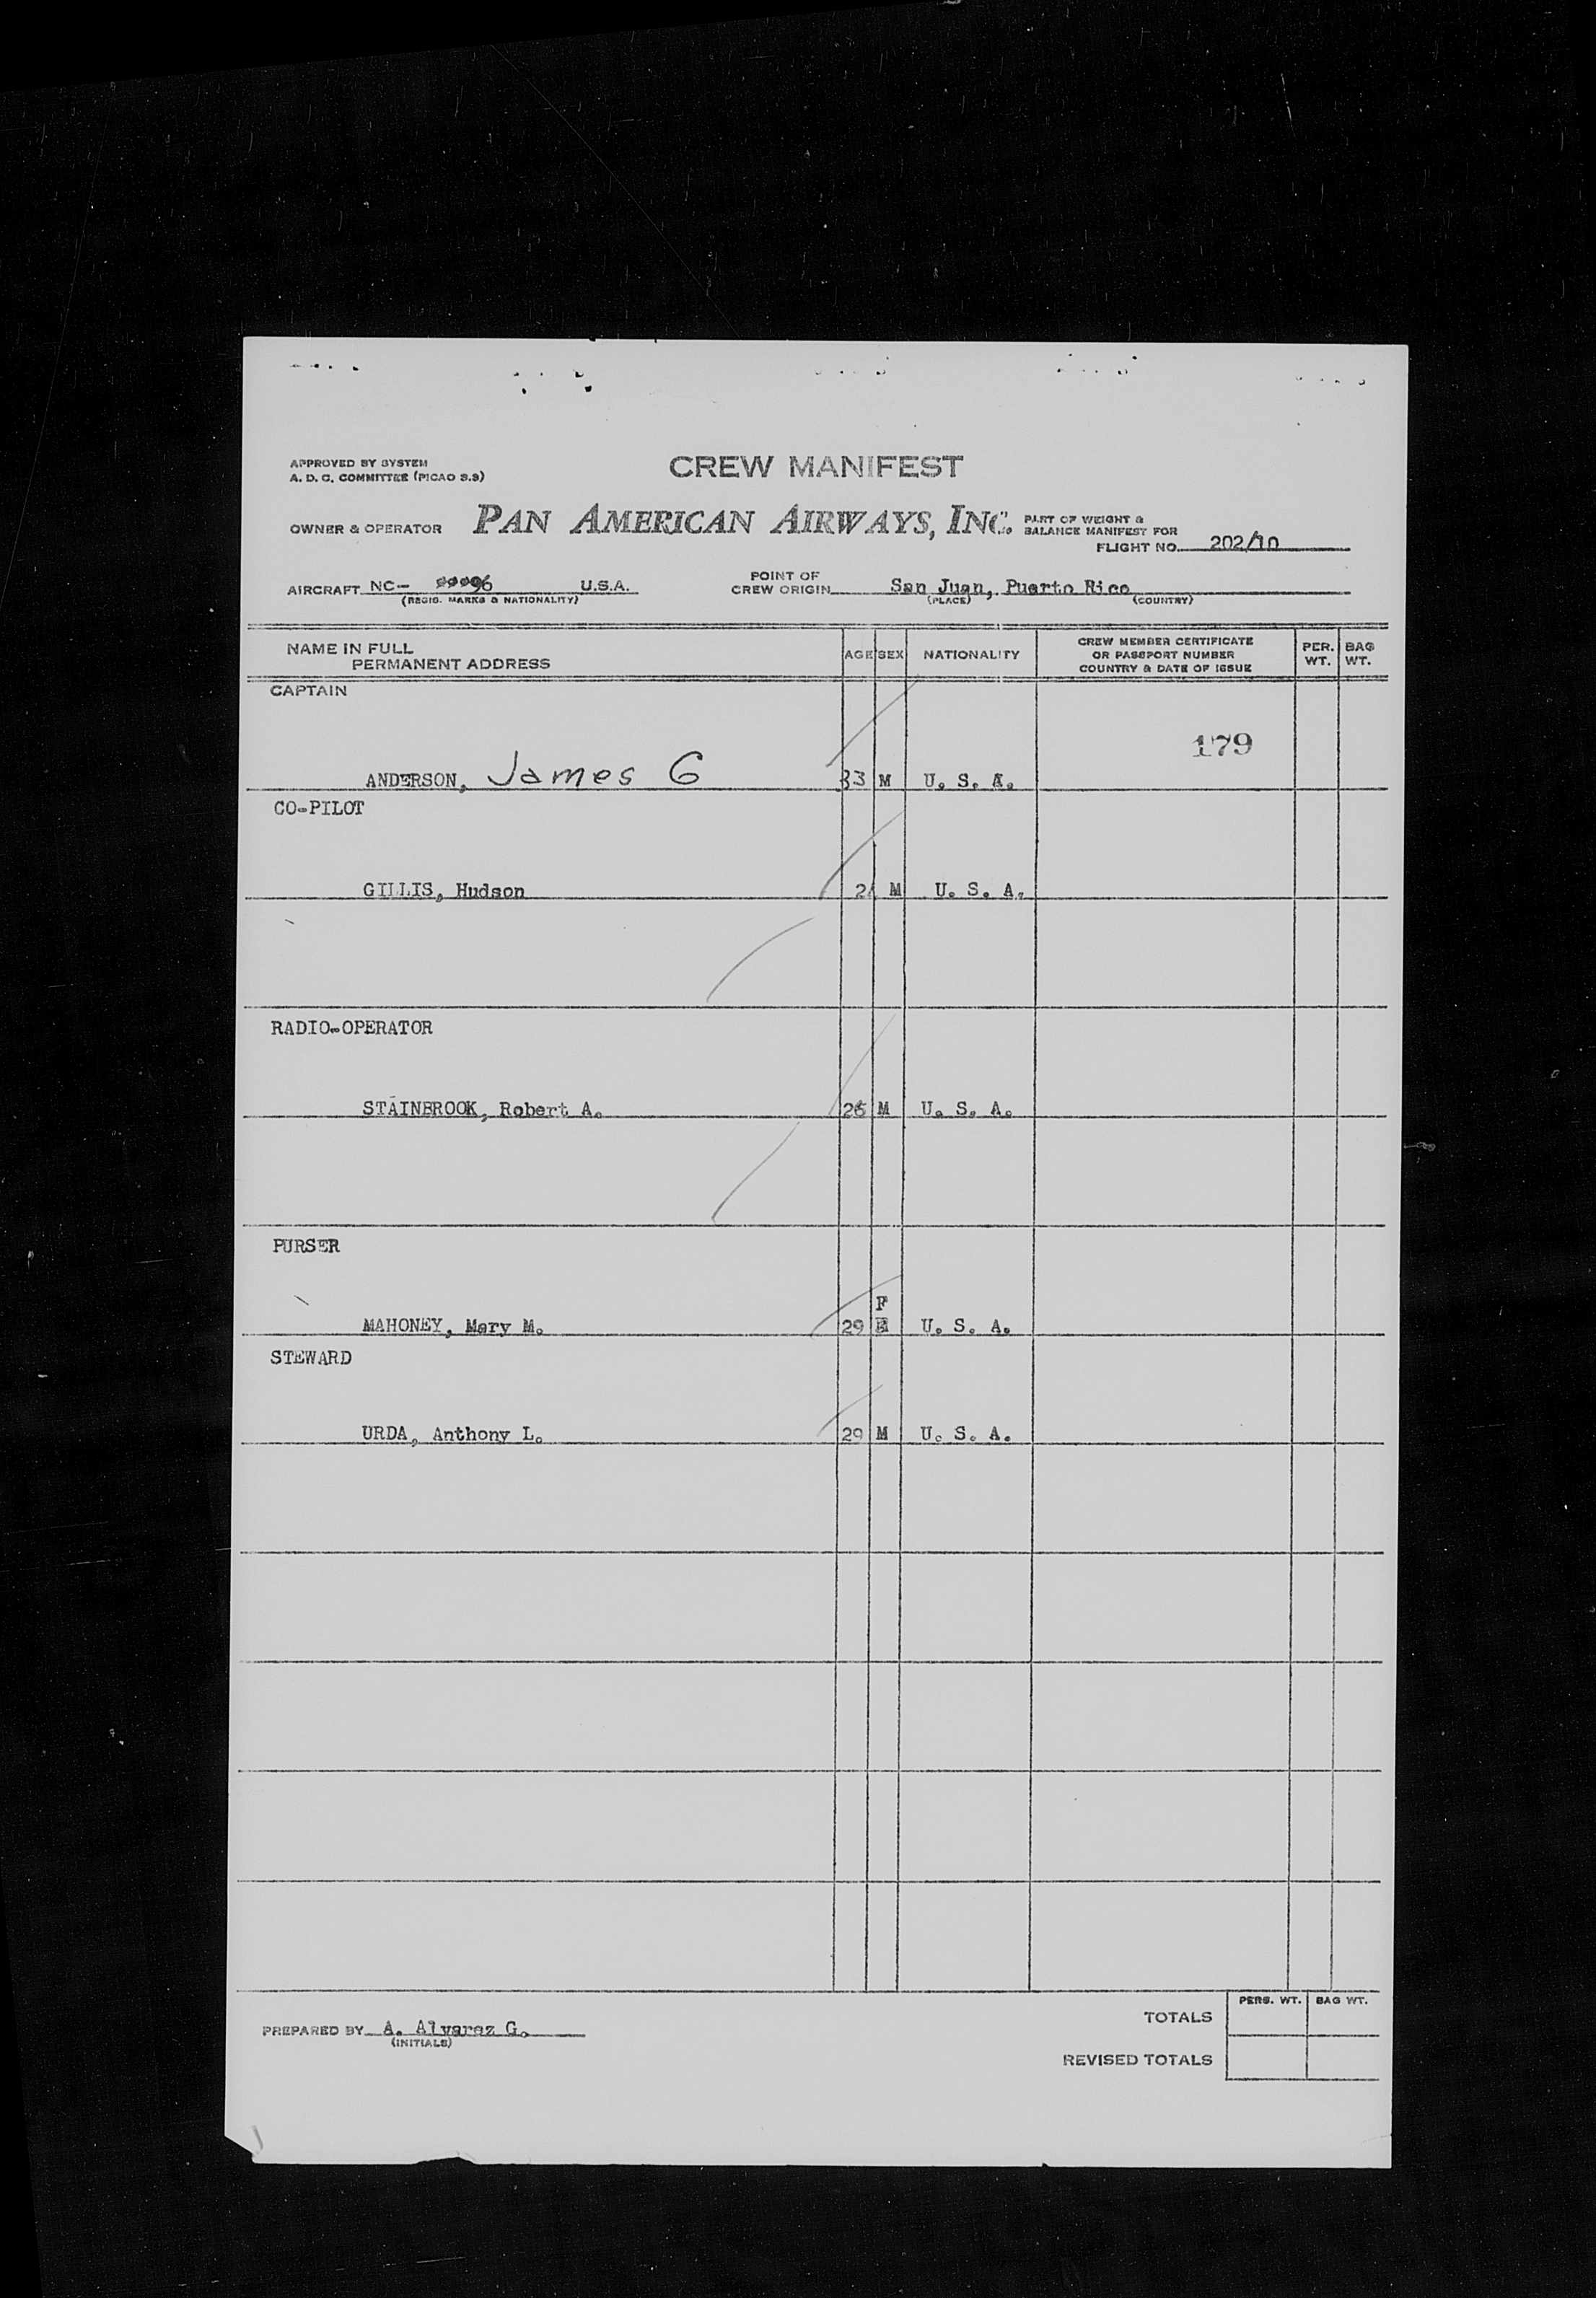 APPROVED BY SYSTEM
A. D. C. COMMITTEE (PICAO S.9)
CREW MANIFEST
OWNER & OPERATOR PAN AMERICAN AIRWAYS, INC. PART OF WEIGHT &
BALANCE MANIFEST FOR
FLIGHT NO. 202/10
AIRCRAFT NC- U.S.A.
(REGIS. MARKS & NATIONALITY)
POINT OF
CREW ORIGIN San Juan, Puerto Rico
(PLACE) (COUNTRY)
NAME IN FULL
PERMANENT ADDRESS
AGE SEX NATIONALITY
CREW MEMBER CERTIFICATE
OR PASSPORT NUMBER
COUNTRY & DATE OF ISSUE
PER. WT.
BAG WT.
CAPTAIN
179
ANDERSON, James G 33 M U. S. A.
CO-PILOT
GILLIS, Hudson M U. S. A.
RADIO-OPERATOR
STAINBROOK, Robert A. 26 M U. S. A.
PURSER
F
MAHONEY, Mary M. 29 U. S. A.
STEWARD
URDA, Anthony L. 29 M U. S. A.
PERS. WT. BAG WT.
TOTALS
PREPARED BY A. Alvarez G.
(INITIALS)
REVISED TOTALS